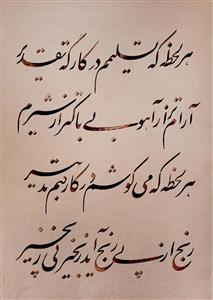 هر لحظه که تسلیمم در کارگه تقدیر
آرامتر از آهو بی باکتر از شیرم
هر لحظه که می کوشم در کار کنم تدبیر
رنج از پی رنج آید زنجیر پی زنجیر